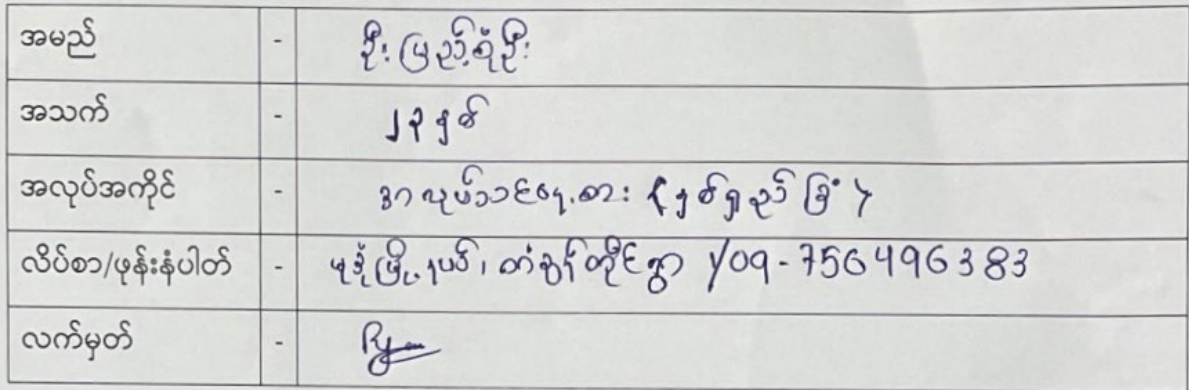 အမည် - ဦးပြည့်ရုံဦး
အသက် - ၂၃ နှစ်
အလုပ်အကိုင် - အလုပ်သင်နေ့စား (နှစ်ရှည်ခြံ)
လိပ်စာ/ဖုန်းနံပါတ် - မုဒုံမြို့နယ်၊ ရွာ /09-756496383
လက်မှတ် -